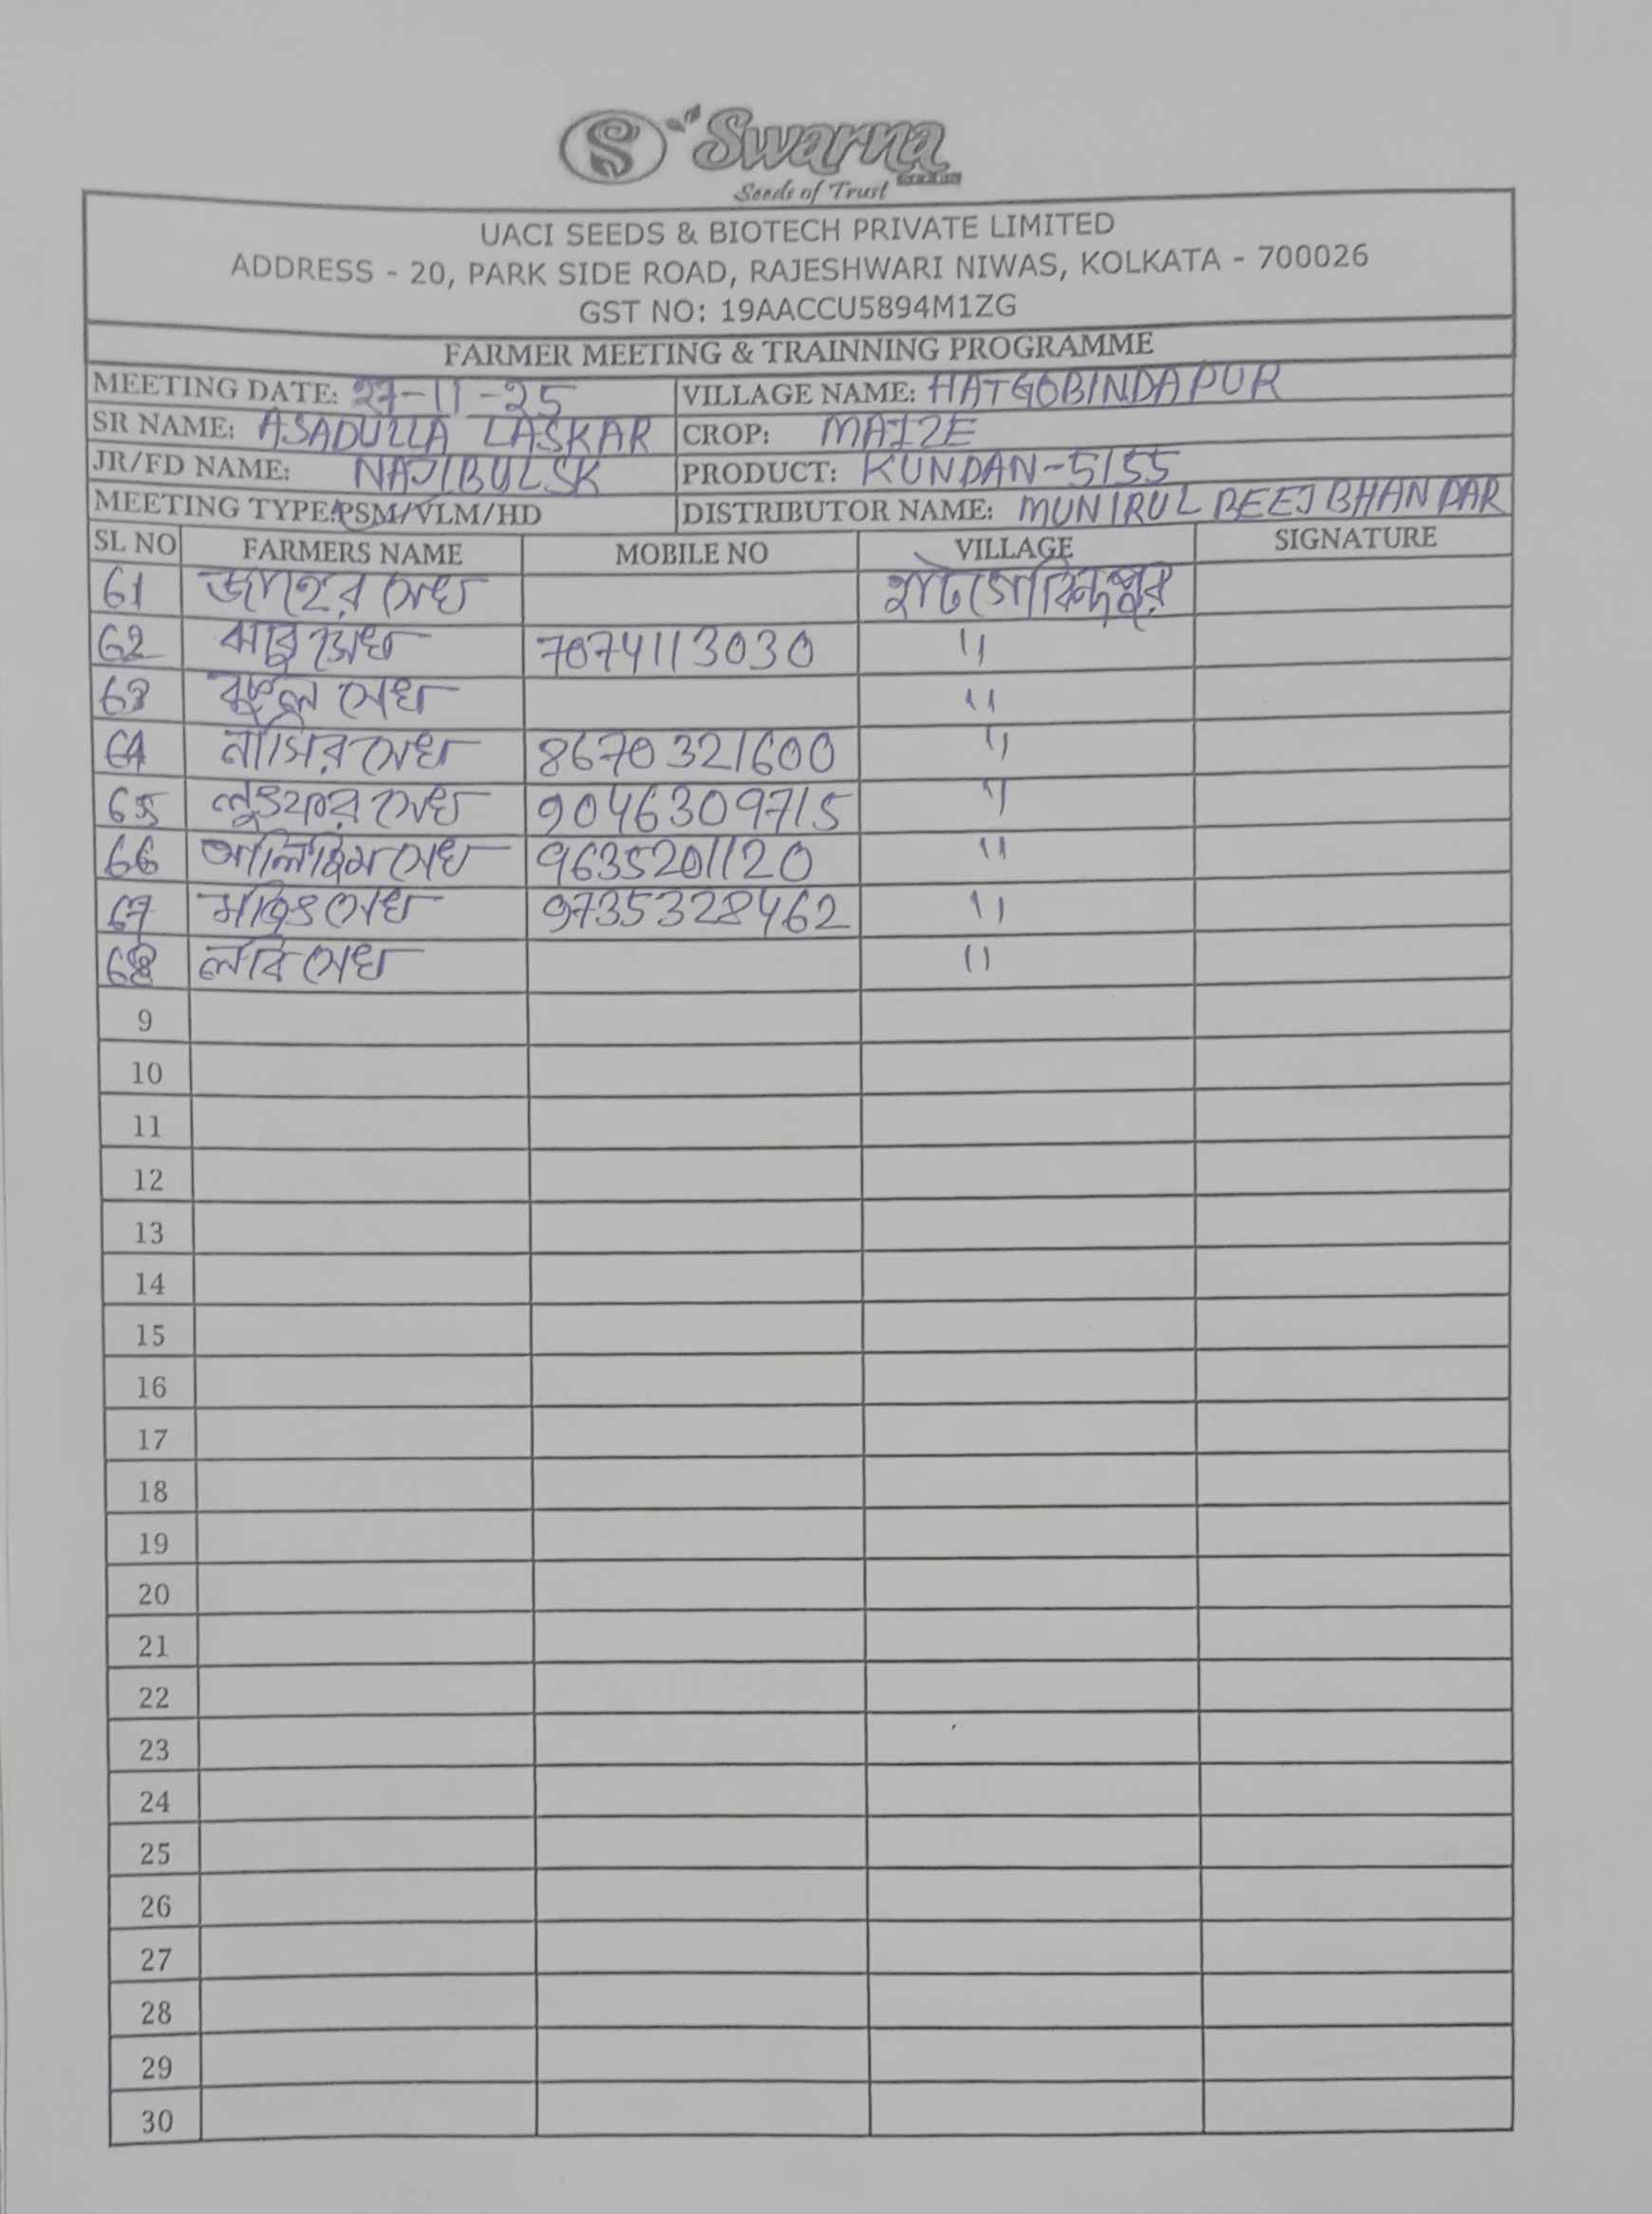 Swarna
Seeds of Trust
UACI SEEDS & BIOTECH PRIVATE LIMITED
ADDRESS - 20, PARK SIDE ROAD, RAJESHWARI NIWAS, KOLKATA - 700026
GST NO: 19AACCU5894M1ZG
FARMER MEETING & TRAINNING PROGRAMME
MEETING DATE: 27-11-25 VILLAGE NAME: HATGOBINDAPUR
SR NAME: ASADULLA LASKAR CROP: MAIZE
JR/FD NAME: NAJIBUL SK PRODUCT: KUNDAN-5155
MEETING TYPE:PSM/VLM/HD DISTRIBUTOR NAME: MUNIRUL BEEJ BHANDAR
SL NO FARMERS NAME MOBILE NO VILLAGE SIGNATURE
61 জাহের সেখ হাটগোবিন্দপুর
62 সেখ 7074113030 "
63 সেখ "
64 নাসির সেখ 8670321600 "
65 লুৎফার সেখ 9046309715 "
66 সেখ 9635201120 "
67 সেখ 9735328462 "
68 সেখ "
9
10
11
12
13
14
15
16
17
18
19
20
21
22
23
24
25
26
27
28
29
30